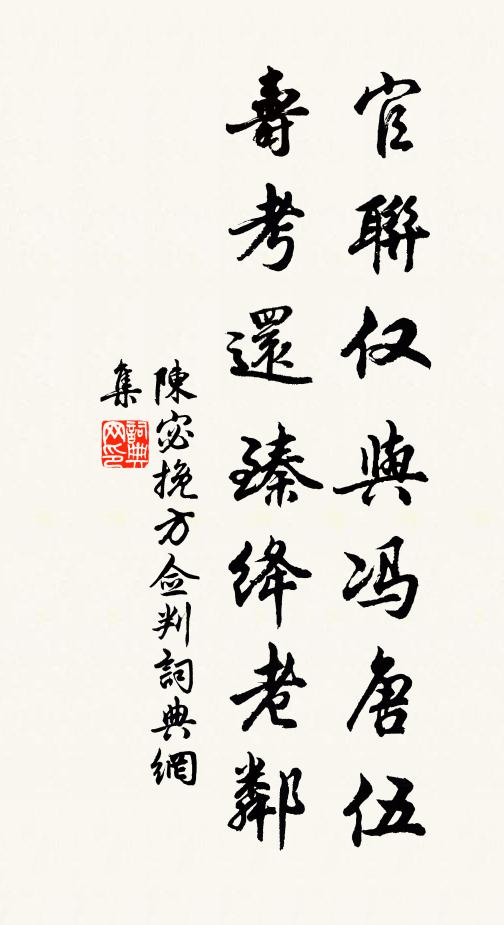 官聯仅與冯唐伍
壽考還臻绛老鄰
陳宓挽方佥判詞典網
集
詞典
网印